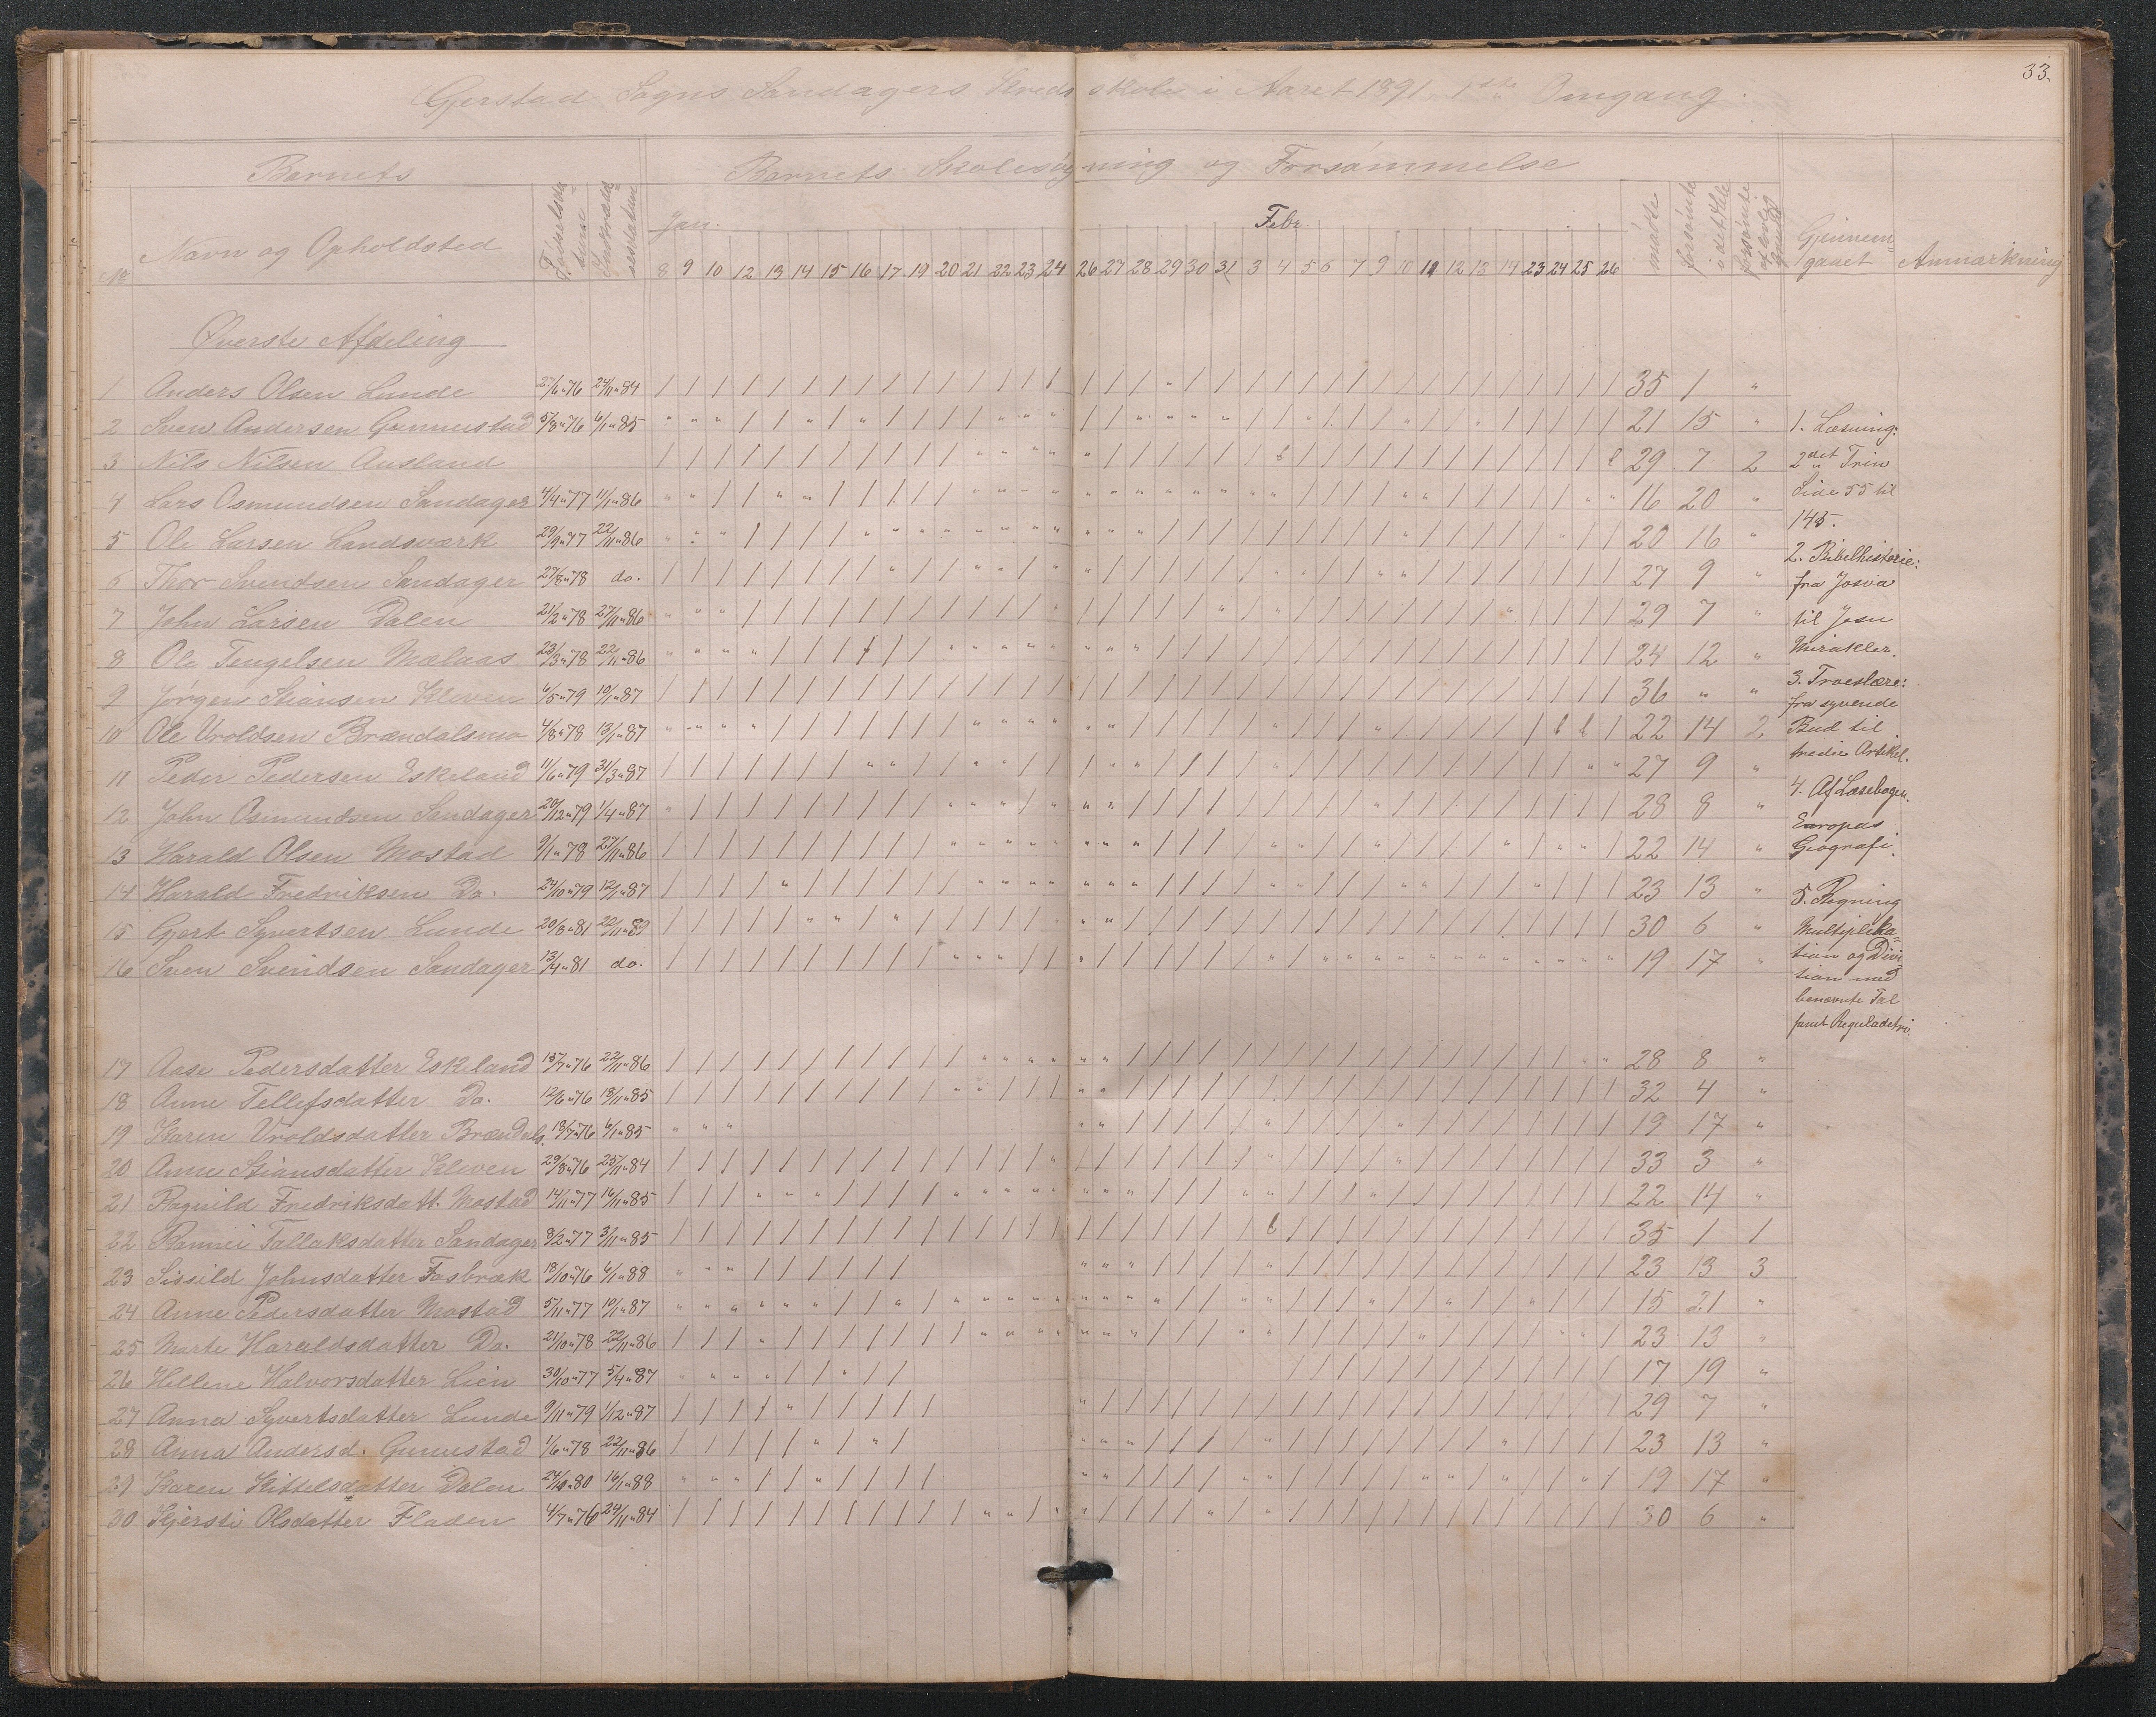 33.
Gjerstad Sogns Sandagers Kredsskole i Aaret 1891. 1ste Omgang.
Barnets
Barnets Skolesøgning og Forsømmelse
No Navn og Opholdsted Fødselsdatum Jan. Febr. mødte forsømte i det Hele forsømte af lovlig Grund Gjennemgaaet Anmærkning
8 9 10 12 13 14 15 16 17 19 20 21 22 23 24 26 27 28 29 30 31 3 4 5 6 7 9 10 11 12 13 14 23 24 25 26
Øverste Afdeling
1 Anders Olsen Lunde 27/6 76 24/11 84 35 1 "
2 Sven Andersen Gunnustad 5/8 76 6/1 85 21 15 "
3 Nils Nilsen Ausland 29 7 2
4 Lars Osmundsen Sandager 4/4 77 11/1 86 16 20 "
5 Ole Larsen Landsværk 29/9 77 22/11 86 20 16 "
6 Thor Svendsen Sandager 27/8 78 do. 27 9 "
7 John Larsen Dalen 21/2 78 27/11 86 29 7 "
8 Ole Tengelsen Mælaas 23/3 78 22/11 86 24 12 "
9 Jørgen Stiansen Kleven 6/5 79 10/1 87 36 " "
10 Ole Vroldsen Brændalsmo 4/8 78 13/1 87 22 14 2
11 Peder Pedersen Eskeland 11/6 79 31/3 87 27 9 "
12 John Osmundsen Sandager 20/12 79 1/4 87 28 8 "
13 Harald Olsen Mostad 9/1 78 27/11 86 22 14 "
14 Harald Fredriksen Do. 24/10 79 12/1 87 23 13 "
15 Gjert Syvertsen Lunde 20/8 81 20/11 89 30 6 "
16 Sven Svendsen Sandager 13/4 81 do. 19 17 "
17 Aase Pedersdatter Eskeland 15/7 76 22/11 86 28 8 "
18 Anne Tellefsdatter Do. 12/6 76 18/11 85 32 4 "
19 Karen Vroldsdatter Brændals. 18/7 76 6/1 85 19 17 "
20 Anne Stiansdatter Kleven 29/8 76 25/11 84 33 3 "
21 Ragnild Fredriksdatt. Mostad 14/11 77 16/11 85 22 14 "
22 Rannei Tallaksdatter Sandager 8/2 77 3/11 85 35 1 1
23 Sissild Johnsdatter Fosbræk 18/10 76 6/1 88 23 13 3
24 Anne Pedersdatter Mostad 5/11 77 10/1 87 15 21 "
25 Marte Haraldsdatter Do. 21/10 78 22/11 86 23 13 "
26 Hellene Halvorsdatter Lien 30/10 77 5/4 87 17 19 "
27 Anna Syvertsdatter Lunde 9/11 79 1/12 87 29 7 "
28 Anna Andersd. Gunnustad 1/6 78 22/11 86 23 13 "
29 Karen Kittelsdatter Dalen 24/10 80 16/1 88 19 17 "
30 Kjersti Olsdatter Fladen 4/7 76 24/11 84 30 6 "
1. Læsning:
2det Trin
Side 55 til
145.
2. Bibelhistorie:
fra Josva
til Jesu
Mirakler.
3. Troeslære:
fra syvende
Bud til
tredie Artikel.
4. Af Læsebogen.
Europas
Geografi.
5. Regning
Multiplika=
tion og Divi
tion med
benævnte Tal
samt Reguladetri.